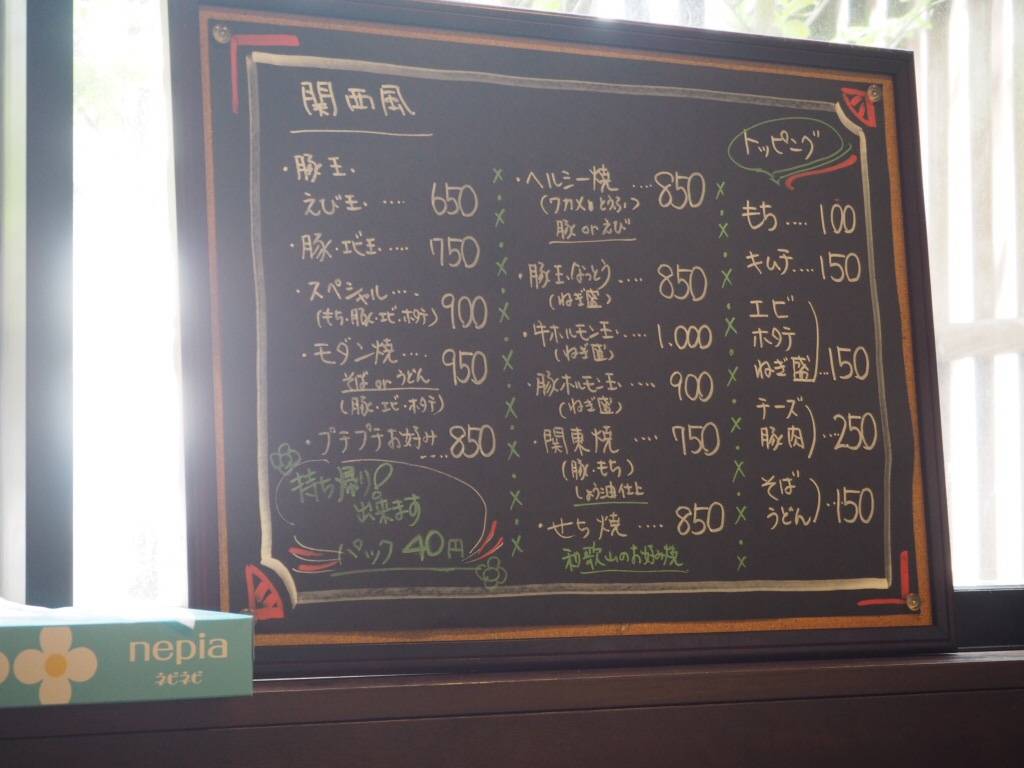 関西風
・豚玉、
えび玉 ‥‥ 650
・豚・エビ玉 ‥‥ 750
・スペシャル‥‥ 900
(もち・豚・エビ・ホタテ)
・モダン焼 ‥‥ 950
そば or うどん
(豚・エビ・ホタテ)
・プチプチお好み
‥‥ 850
持ち帰り
出来ます
パック 40円
・ヘルシー焼 ‥‥ 850
(ワカメ とうふ)
豚 or えび
・豚玉なっとう‥‥ 850
(ねぎ盛)
・牛ホルモン玉‥‥ 1.000
(ねぎ盛)
・豚ホルモン玉‥‥ 900
(ねぎ盛)
・関東焼 ‥‥ 750
(豚・もち)
しょう油仕上
・せち焼 ‥‥ 850
和歌山のお好み焼
トッピング
もち ‥‥ 100
キムチ‥‥ 150
エビ
ホタテ
ねぎ盛 ‥150
チーズ
豚肉 ‥250
そば
うどん ‥150
nepia
ネピネピ